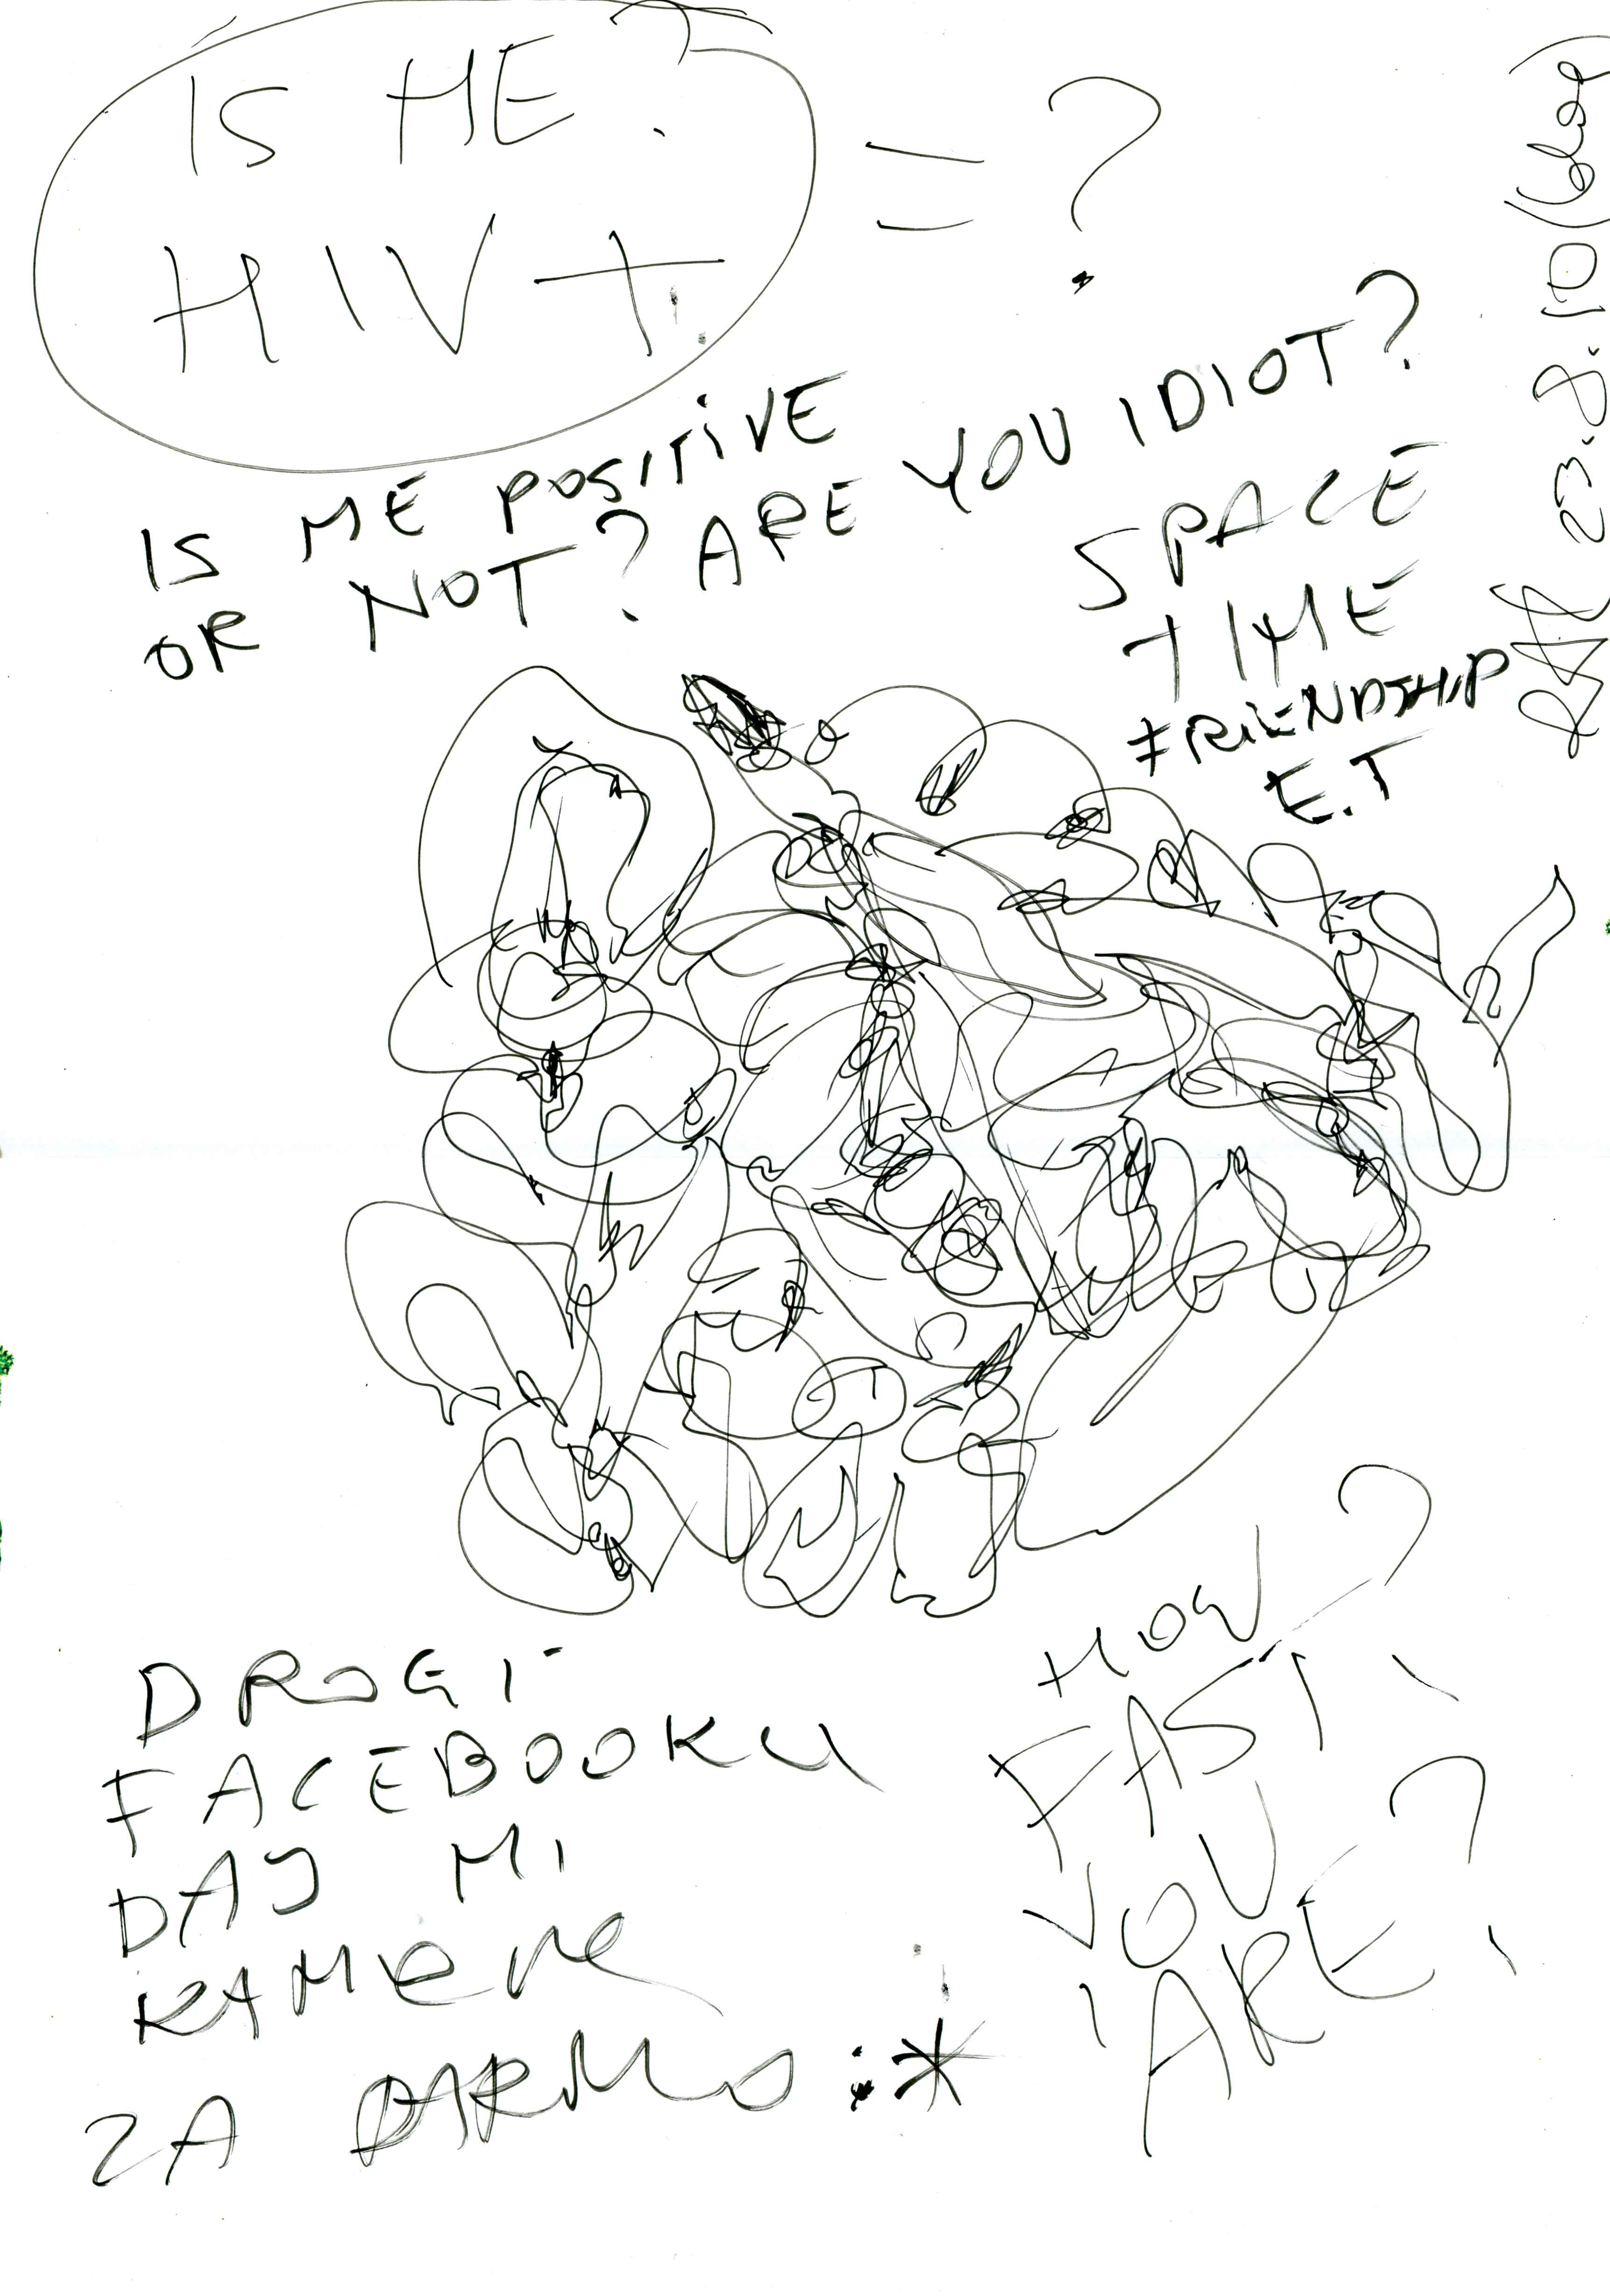 IS HE?
HIV +
= ?
IS HE POSITIVE
OR NOT? ARE YOU IDIOT?
SPACE
TIME
FRIENDSHIP
E.T
23.8.10
DROGI
FACEBOOKU
DAJ MI
KAMERĘ
ZA DARMO :*
HOW
FAST?
YOU
ARE?